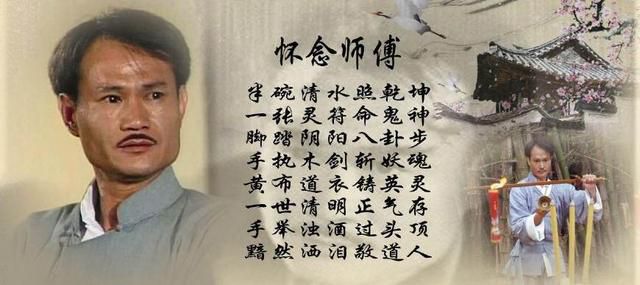 怀念师傅
半碗清水照乾坤
一张灵符命鬼神
脚踏阴阳八卦步
手执木剑斩妖魂
黄布道衣铸英灵
一世清明正气存
手举浊酒过头顶
黯然洒泪敬道人